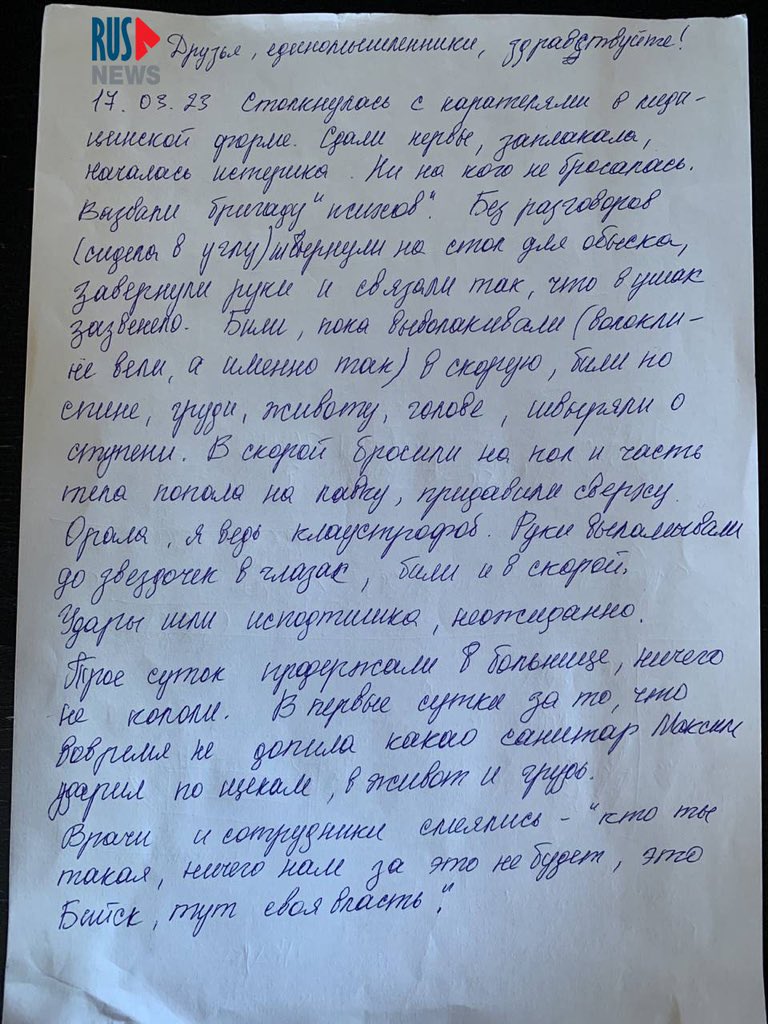 RUS
NEWS
Друзья, единомышленники, здравствуйте!
17.03.23 Столкнулась с карателями в меди-
цинской форме. Сдали нервы, заплакала,
началась истерика. Ни на кого не бросалась.
Вызвали бригаду "психов". Без разговоров
(сидела в углу) швырнули на стол для обыска,
завернули руки и связали так, что в ушах
зазвенело. Били, пока выволакивали (волокли-
не вели, а именно так) в скорую, били по
спине, груди, животу, голове, швыряли о
ступени. В скорой бросили на пол и часть
тела попала на лавку, придавили сверху.
Орала, я ведь клаустрофоб. Руки выламывали
до звездочек в глазах, били и в скорой.
Удары шли исподтишка, неожиданно.
Трое суток продержали в больнице, ничего
не кололи. В первые сутки за то, что
вовремя не допила какао санитар Максим
ударил по щекам, в живот и грудь.
Врачи и сотрудники смеялись - "кто ты
такая, ничего нам за это не будет, это
Бийск, тут своя власть".